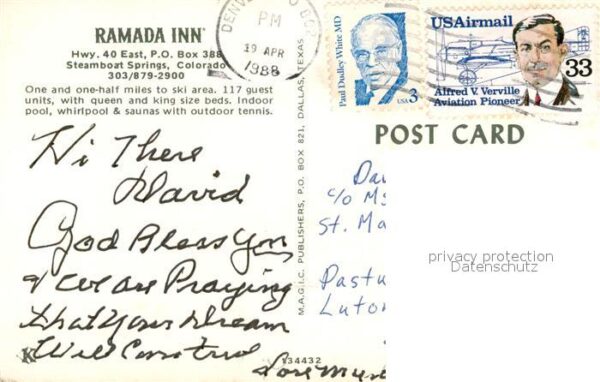 RAMADA INN®
Hwy. 40 East, P.O. Box 388
Steamboat Springs, Colorado
303/879-2900
One and one-half miles to ski area. 117 guest
units, with queen and king size beds. Indoor
pool, whirlpool & saunas with outdoor tennis.
DENVER
PM
19 APR
1988
Paul Dudley White MD
USA 3
USAirmail
33
Alfred V. Verville
Aviation Pioneer
POST CARD
M.A.G.I.C. PUBLISHERS, P.O. BOX 821, DALLAS, TEXAS
Hi There
David
God Bless You
& we are Praying
that Your Dream
Will
Love
134432
K
Dav
c/o
St. Ma
Pastu
Luton
privacy protection
Datenschutz